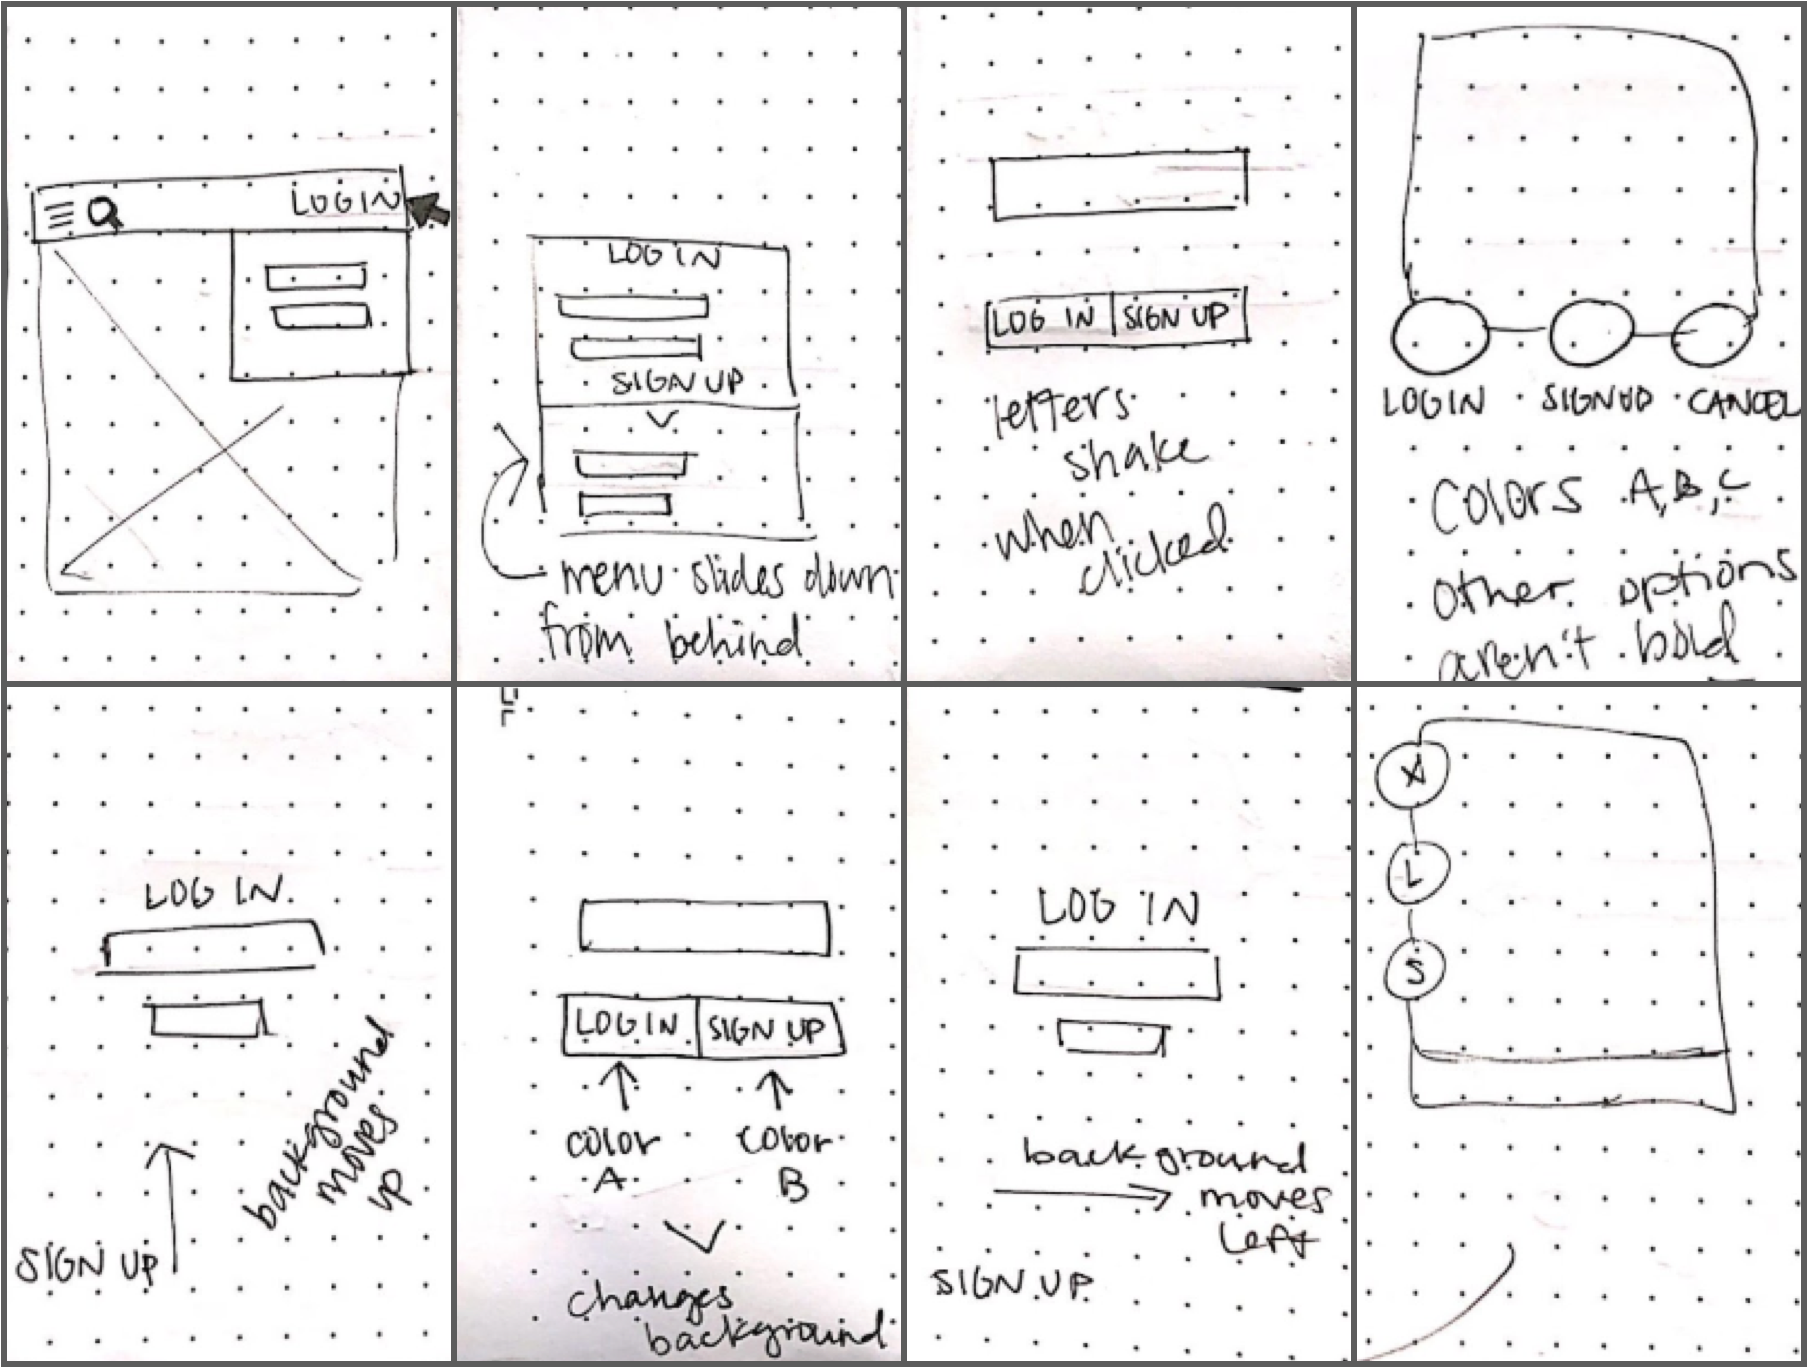 LOGIN
LOG IN
SIGN UP
menu slides down
from behind
LOG IN
SIGN UP
letters
shake
when
clicked
LOGIN
SIGNUP
CANCEL
Colors A,B,C
other options
aren't bold
LOG IN
background
moves
up
SIGN UP
LOGIN
SIGN UP
color
A
color
B
changes
background
LOG IN
background
moves
left
SIGN UP
X
L
S